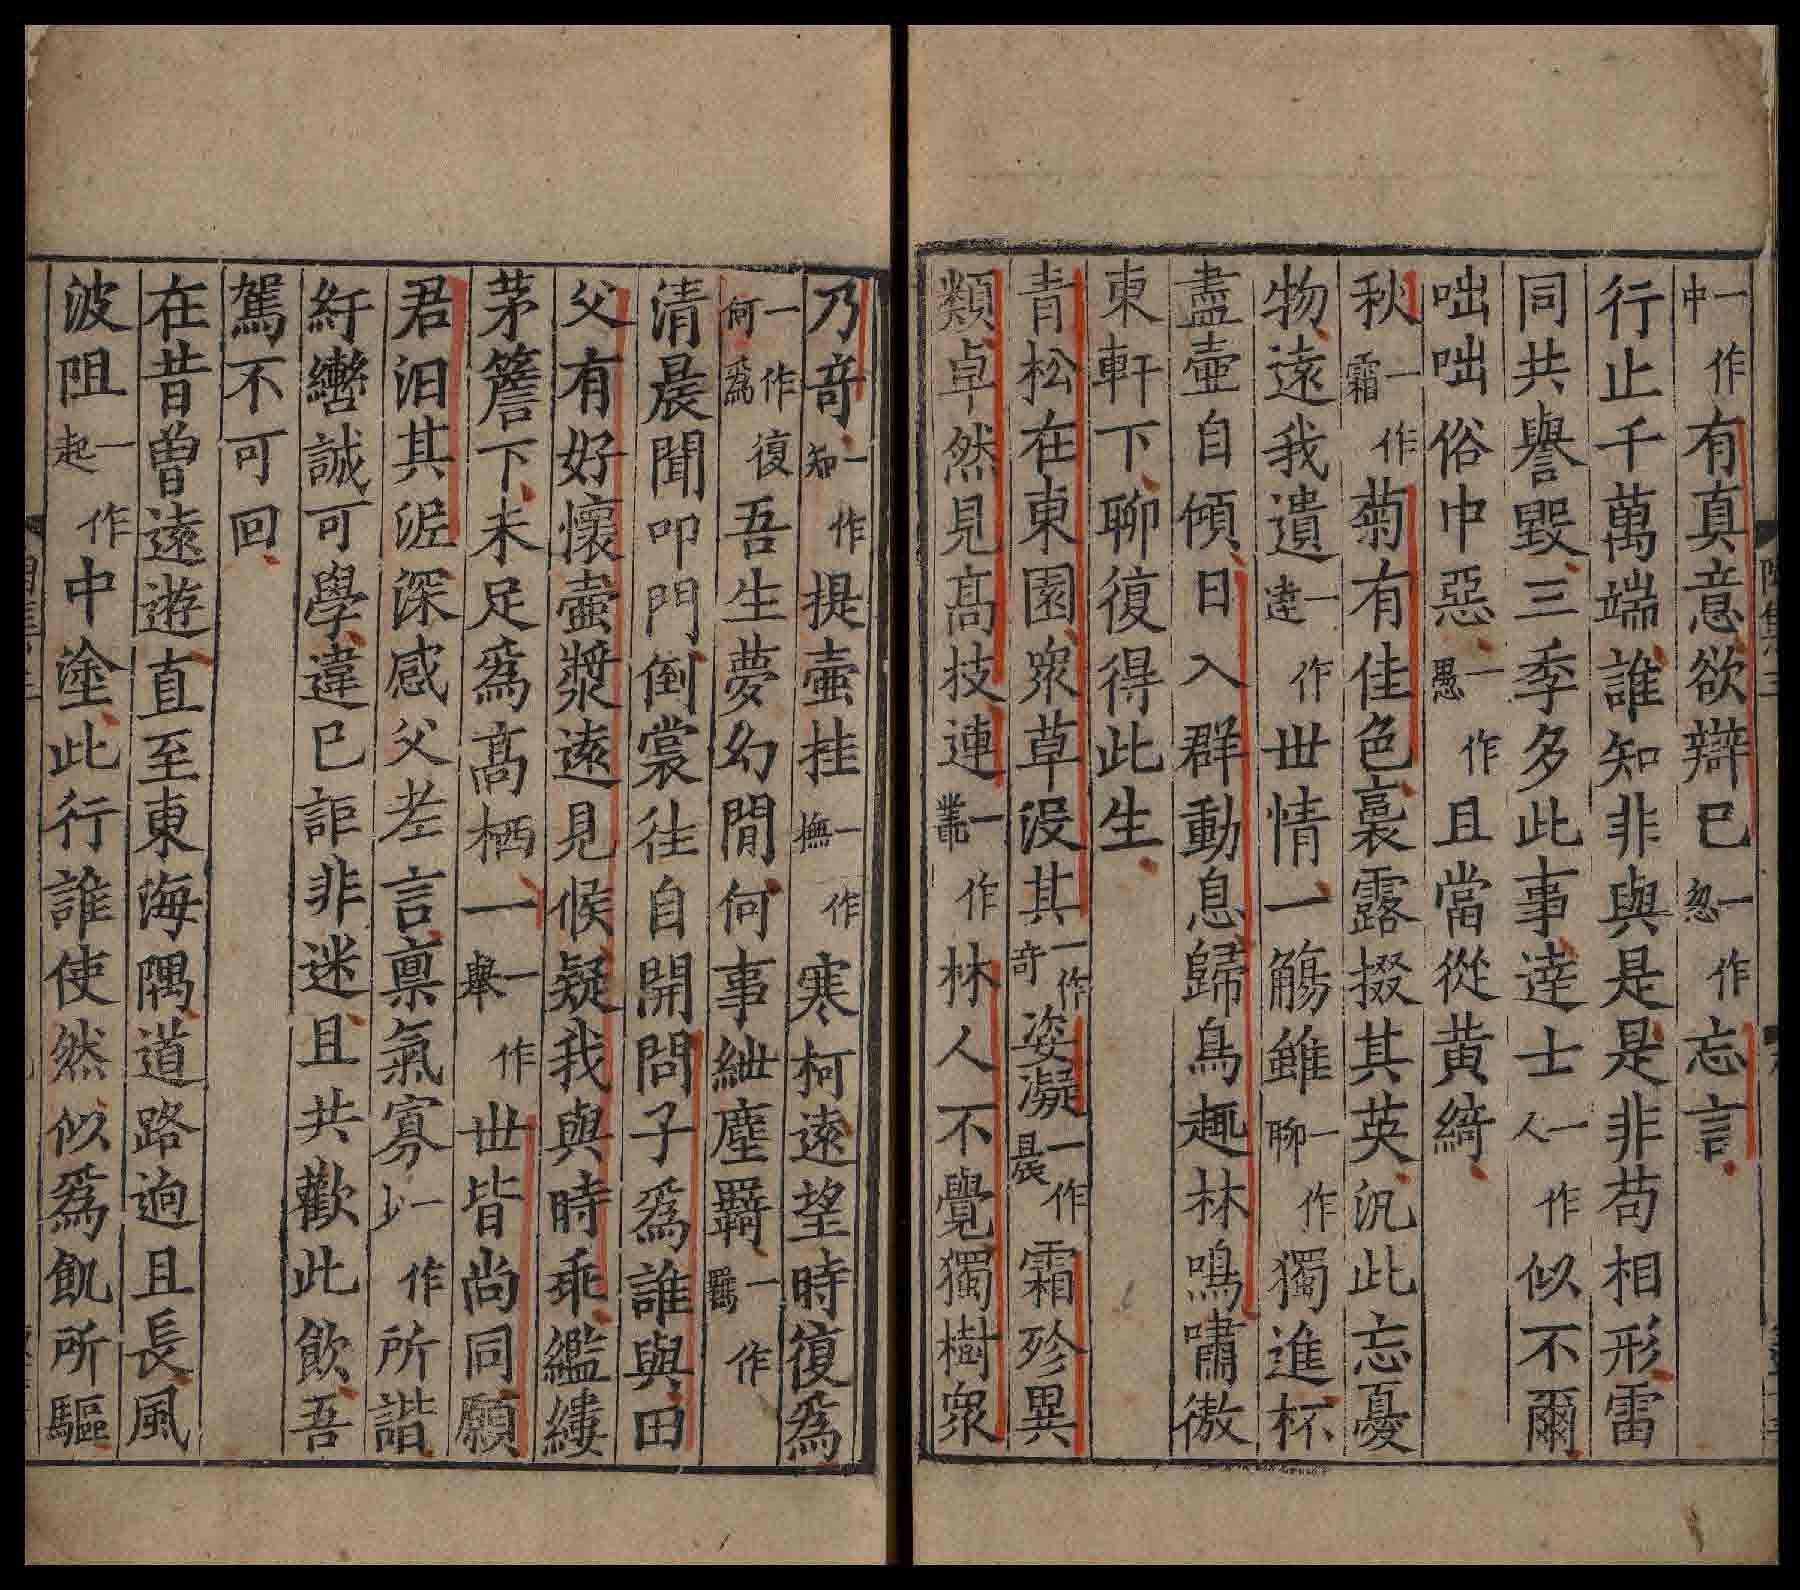 一作中有真意欲辯巳一作忽忘言
行止千萬端誰知非與是是非苟相形雷
同共譽毀三季多此事逹士一作人似不爾
咄咄俗中惡一作愚且當從黃綺
秋一作霜菊有佳色裛露掇其英汎此忘憂
物遠我遺一作達世情一觴雖一作聊獨進杯
盡壺自傾日入群動息歸鳥趣林鳴嘯傲
東軒下聊復得此生
青松在東園衆草沒其一作奇姿凝一作晨霜殄異
類卓然見高枝連一作叢林人不覺獨樹衆
乃竒一作知提壺挂一作撫寒柯遠望時復爲
一作復何爲吾生夢幻間何事紲塵羈一作羇
清晨聞叩門倒裳往自開問子爲誰與田
父有好懷壺漿遠見候疑我與時乖繿縷
茅簷下未足爲高栖一一作舉世皆尚同願
君汩其泥深感父老言稟氣寡一作少所諧
紆轡誠可學違巳詎非迷且共歡此飲吾
駕不可回
在昔曾遠遊直至東海隅道路逈且長風
波阻一作起中塗此行誰使然似爲飢所驅